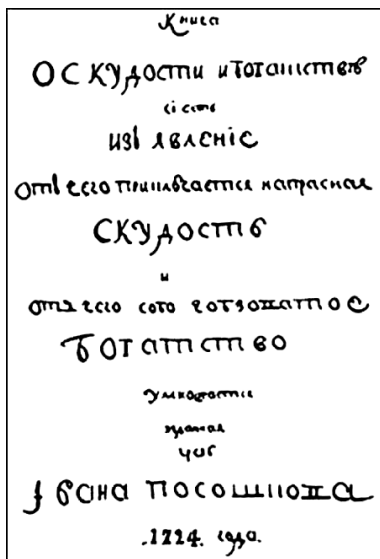 Книга
О СКУДОСТИ и богатстве
сі есть
изъявленіе
отчего приключается напрасная
СКУДОСТЬ
и
отчего
БОГАТСТВО
умножается
Івана ПОСОШКОВА
.1724. года.